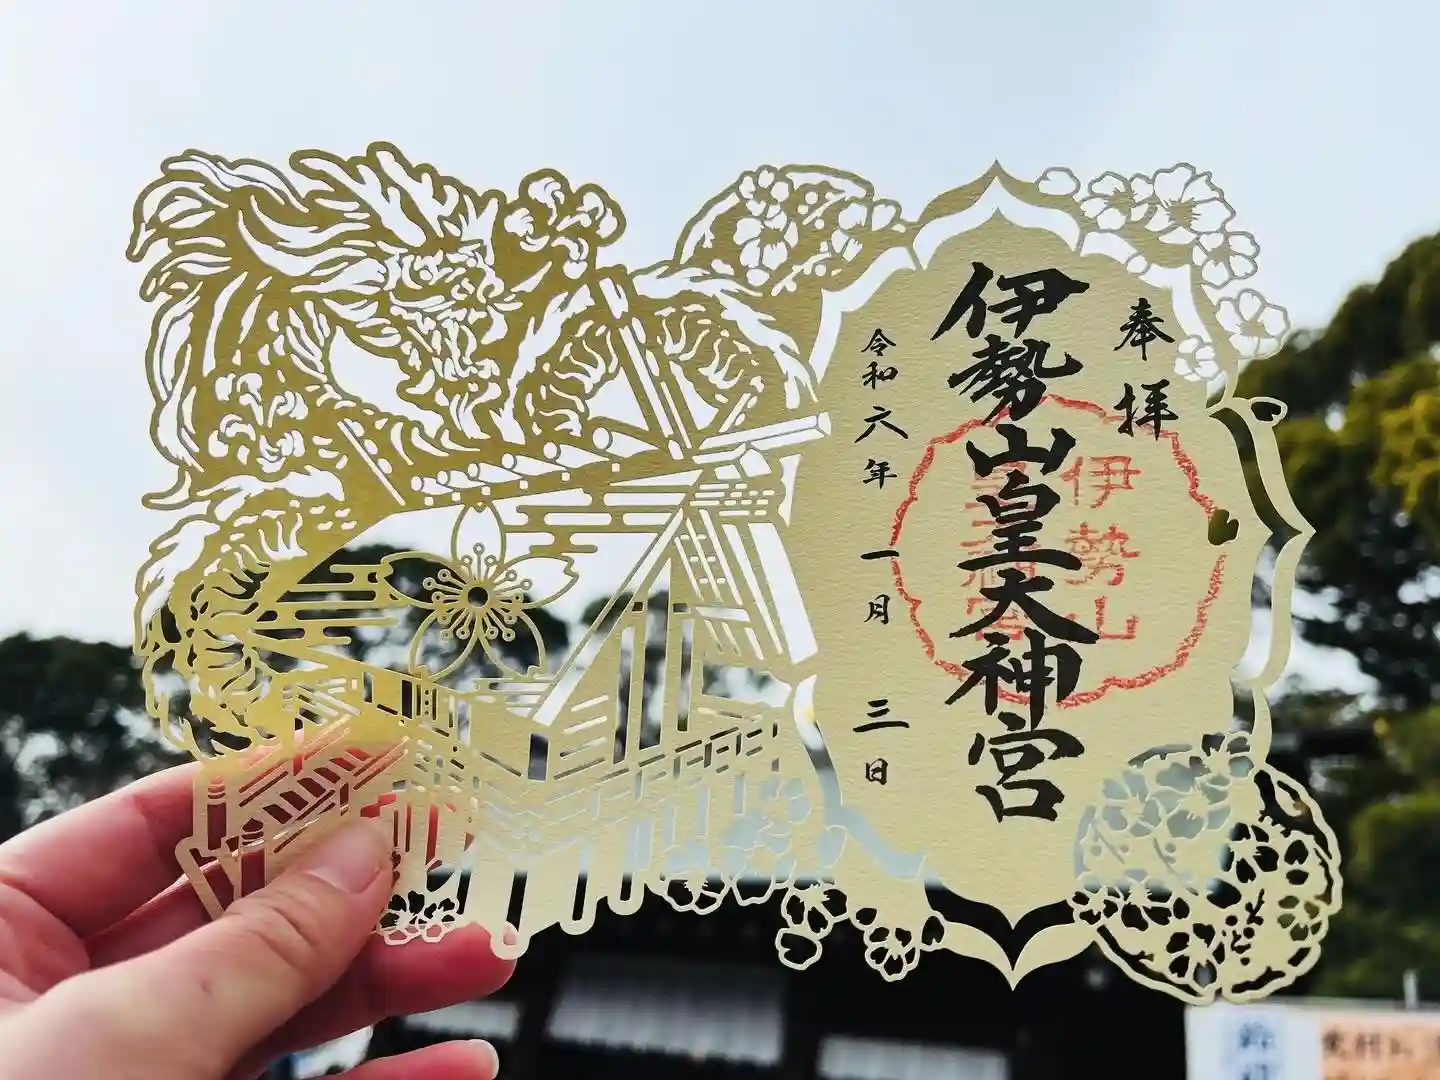 奉拝
伊勢山皇大神宮
伊勢山
令和六年一月三日